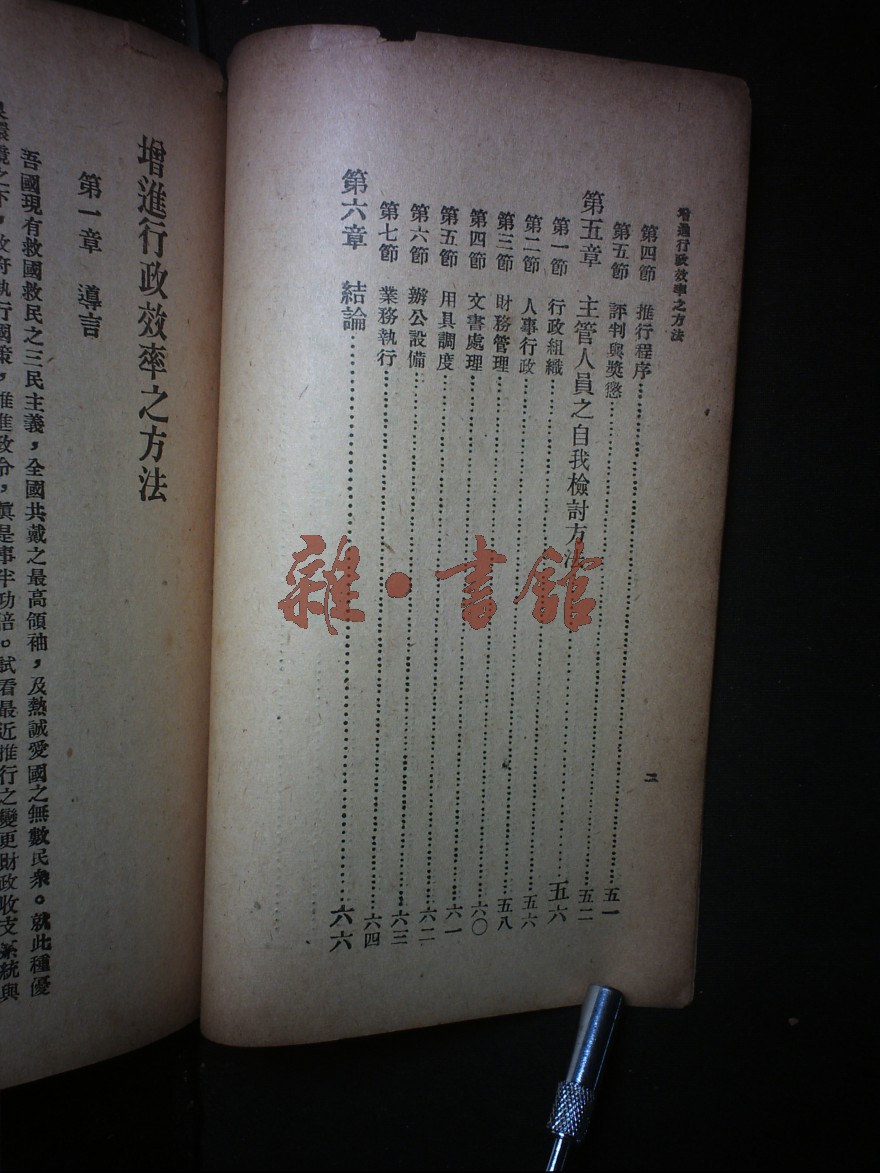 增進行政效率之方法
二
第四節 推行程序……五一
第五節 評判與獎懲……五二
第五章 主管人員之自我檢討方法……五六
第一節 行政組織……五六
第二節 人事行政……五八
第三節 財務管理……六〇
第四節 文書處理……六一
第五節 用具調度……六二
第六節 辦公設備……六三
第七節 業務執行……六四
第六章 結論……六六
增進行政效率之方法
第一章 導言
吾國現有救國救民之三民主義，全國共戴之最高領袖，及熱誠愛國之無數民衆。就此種優
良環境之下，政府執行國策，推進政令，眞是事半功倍。試看最近推行之變更財政收支系統與
雜·書館